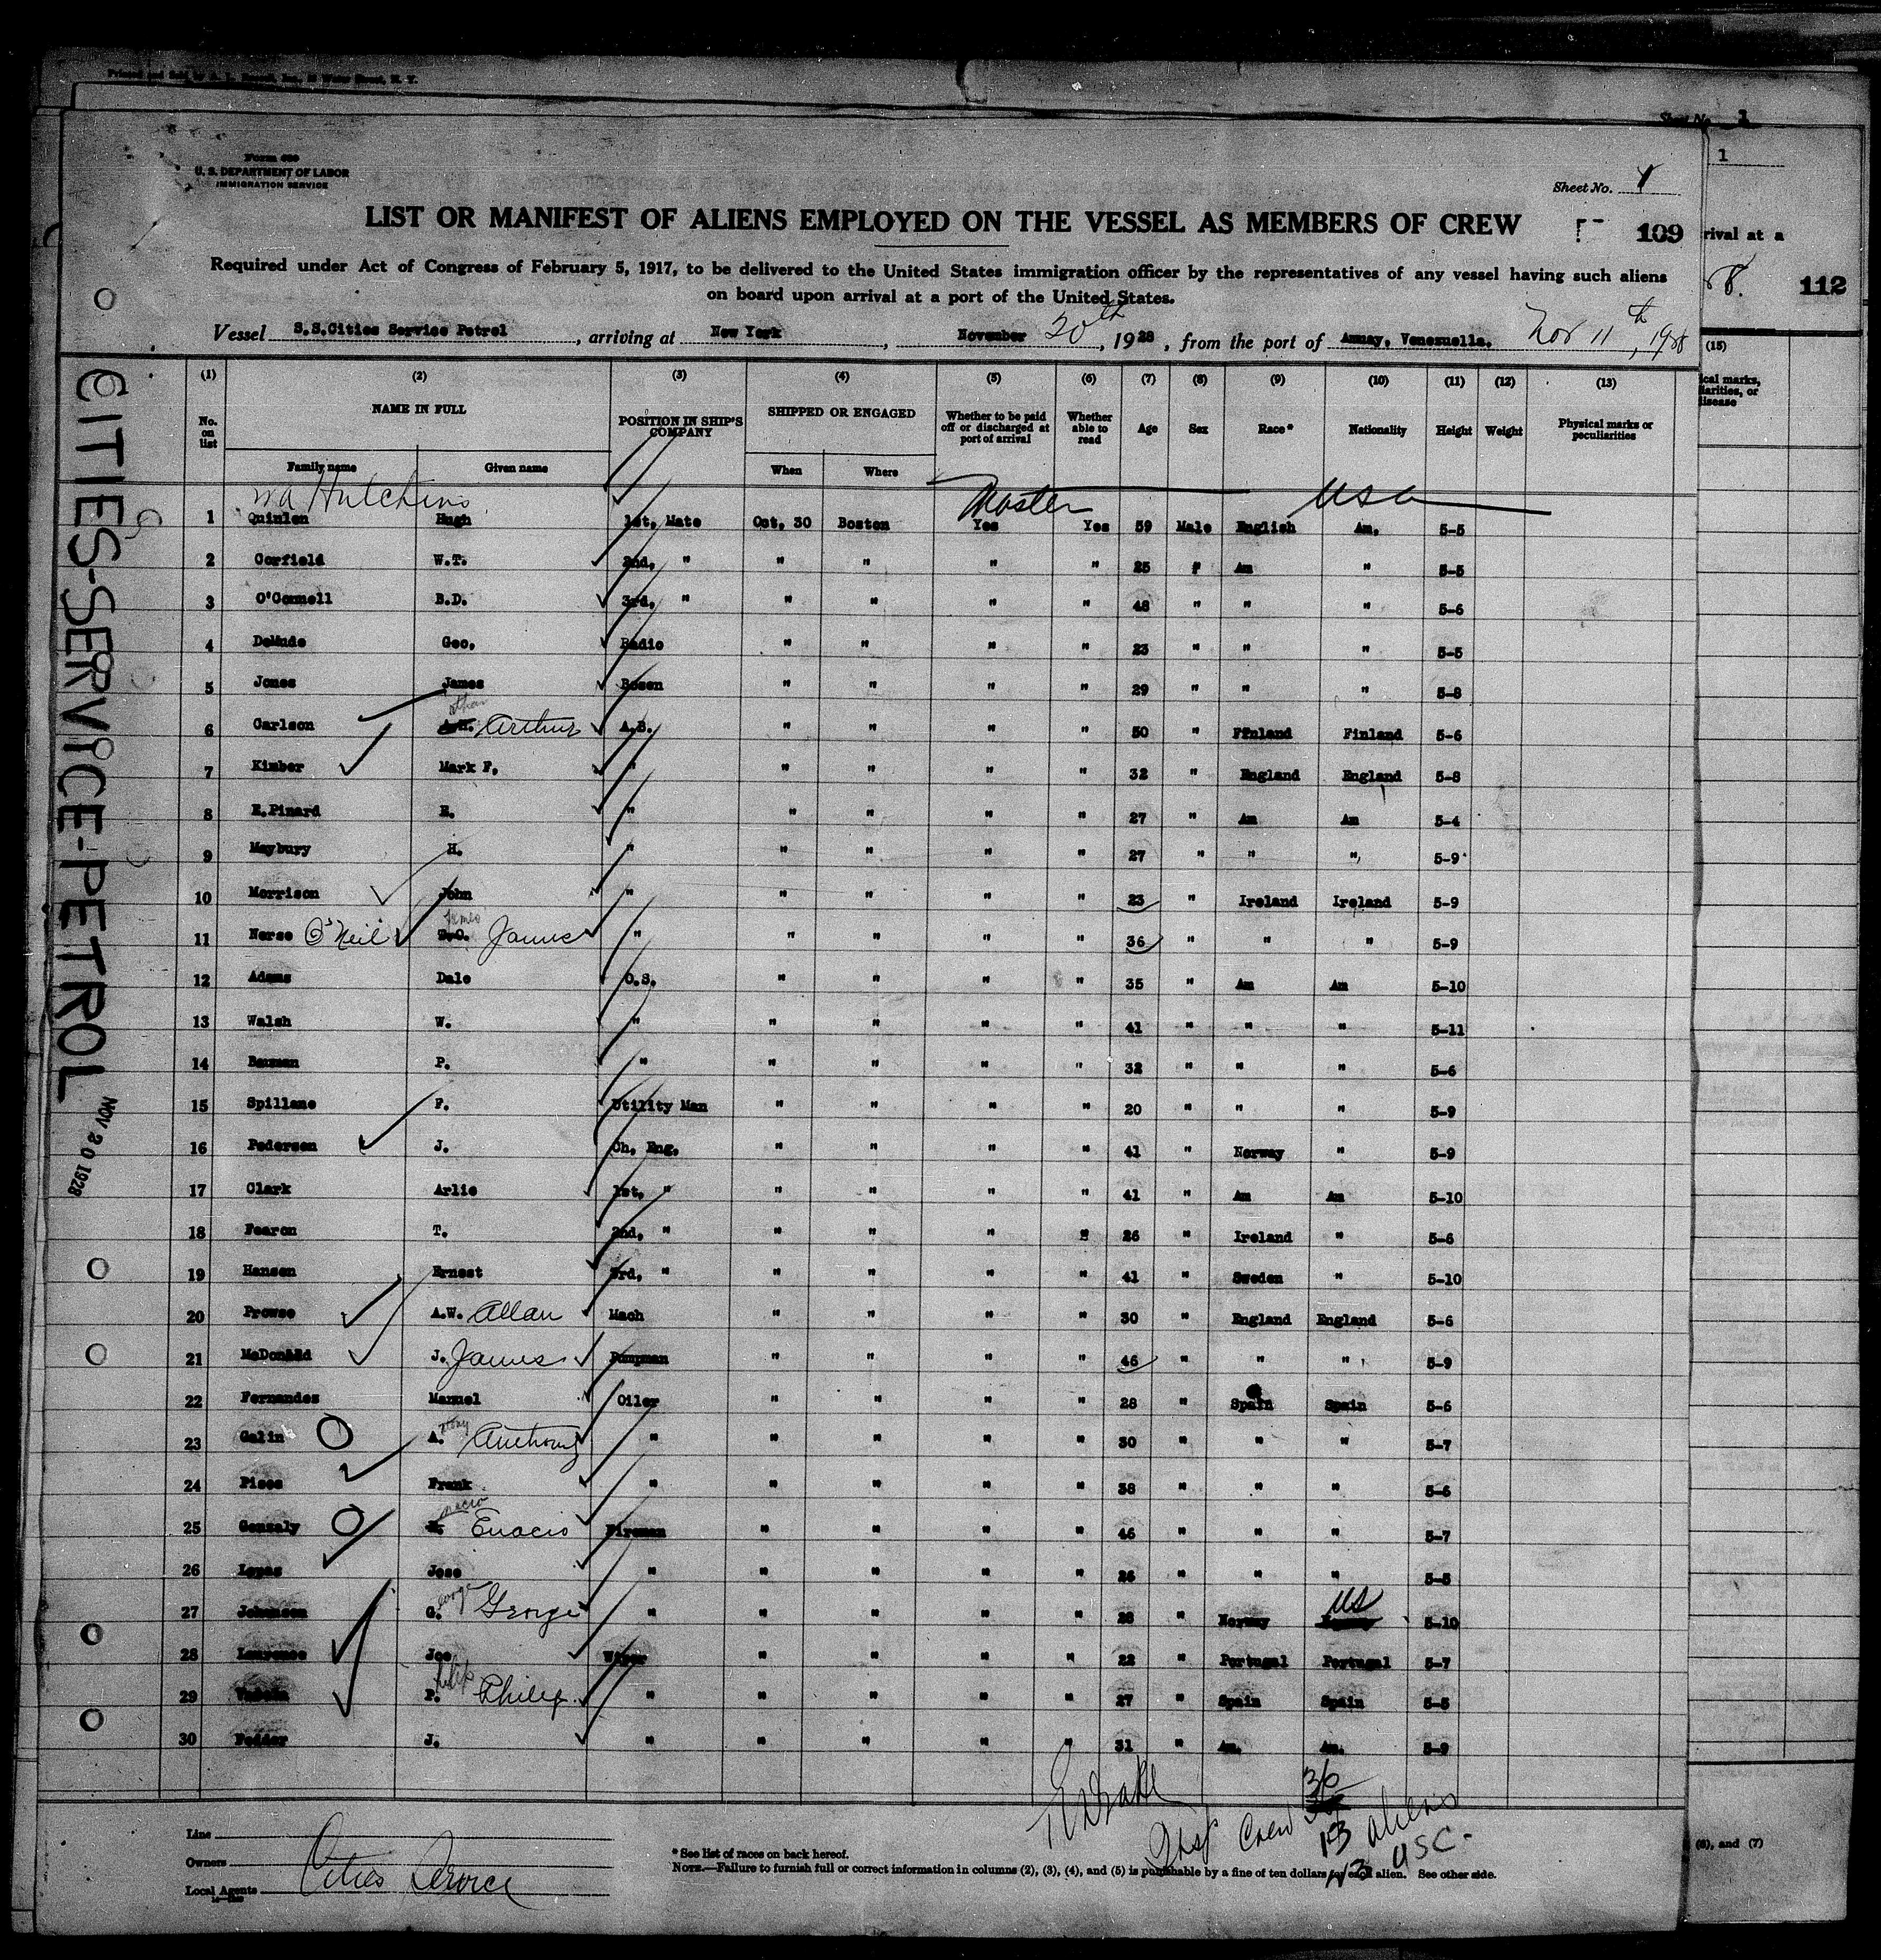 Sheet No. 1
1
Form 680
U. S. DEPARTMENT OF LABOR
IMMIGRATION SERVICE
Sheet No. 1
LIST OR MANIFEST OF ALIENS EMPLOYED ON THE VESSEL AS MEMBERS OF CREW
109
rival at a
112
Required under Act of Congress of February 5, 1917, to be delivered to the United States immigration officer by the representatives of any vessel having such aliens
on board upon arrival at a port of the United States.
Vessel S.S.Cities Service Petrol, arriving at New York, November 20th, 1928, from the port of Amuay, Venezuella. Nov 11th, 1928
(1) (2) (3) (4) (5) (6) (7) (8) (9) (10) (11) (12) (13) (15)
No. on list NAME IN FULL POSITION IN SHIP'S COMPANY SHIPPED OR ENGAGED Whether to be paid off or discharged at port of arrival Whether able to read Age Sex Race* Nationality Height Weight Physical marks or peculiarities
Family name Given name When Where
Hutchins Master USA
1 Quinlen Hugh 1st, Mate Oct, 30 Boston Yes Yes 59 Male English Am, 5-5
2 Corfield W.T. 2nd, " " " " " 25 " Am " 5-5
3 O'Connell B.D. 3rd, " " " " " 48 " " " 5-6
4 DeMude Geo, Radio " " " " 23 " " " 5-5
5 Jones James Bosen " " " " 29 " " " 5-8
6 Carlson A.H. Arthur A.B. " " " " 50 " Finland Finland 5-6
7 Kimber Mark F, " " " " " 32 " England England 5-8
8 E.Pinard E. " " " " " 27 " Am Am 5-4
9 Maybury H. " " " " " 27 " " " 5-9
10 Morrison John " " " " " 23 " Ireland Ireland 5-9
11 Nerse O'Neil James " " " " " 36 " " " 5-9
12 Adams Dale O.S. " " " " 35 " Am Am 5-10
13 Walsh W. " " " " " 41 " " " 5-11
14 Bauman P. " " " " " 32 " " " 5-6
15 Spillane F. Utility Man " " " " 20 " " " 5-9
16 Pedersen J. Ch, Eng, " " " " 41 " Norway " 5-9
17 Clark Arlie 1st, " " " " " 41 " Am Am 5-10
18 Fearon T. 2nd, " " " " " 26 " Ireland " 5-6
19 Hansen Ernest 3rd, " " " " " 41 " Sweden " 5-10
20 Prowse A.W. Allan Mach " " " " 30 " England England 5-6
21 McDonald J. James Pumpman " " " " 46 " " " 5-9
22 Fernandez Manuel Oiler " " " " 28 " Spain Spain 5-6
23 Galin A. Anthony " " " " " 30 " " " 5-7
24 Pisos Frank " " " " " 38 " " " 5-6
25 Gonzaly Enacio Fireman " " " " 46 " " " 5-7
26 Lopas Jose " " " " " 26 " " " 5-5
27 Johanson G. George " " " " " 28 " Norway US 5-10
28 Laurence Joe Wiper " " " " 22 " Portugal Portugal 5-7
29 P. Philip " " " " " 27 " Spain Spain 5-5
30 Fedder J. " " " " " 31 " Am. Am. 5-9
CITIES-SERVICE-PETROL
NOV 20 1928
Insp Crew 36
13 aliens
USC
Line
Owners
Local Agents
Cities Service
* See list of races on back hereof.
NOTE.—Failure to furnish full or correct information in columns (2), (3), (4), and (5) is punishable by a fine of ten dollars for each alien. See other side.
(6), and (7)